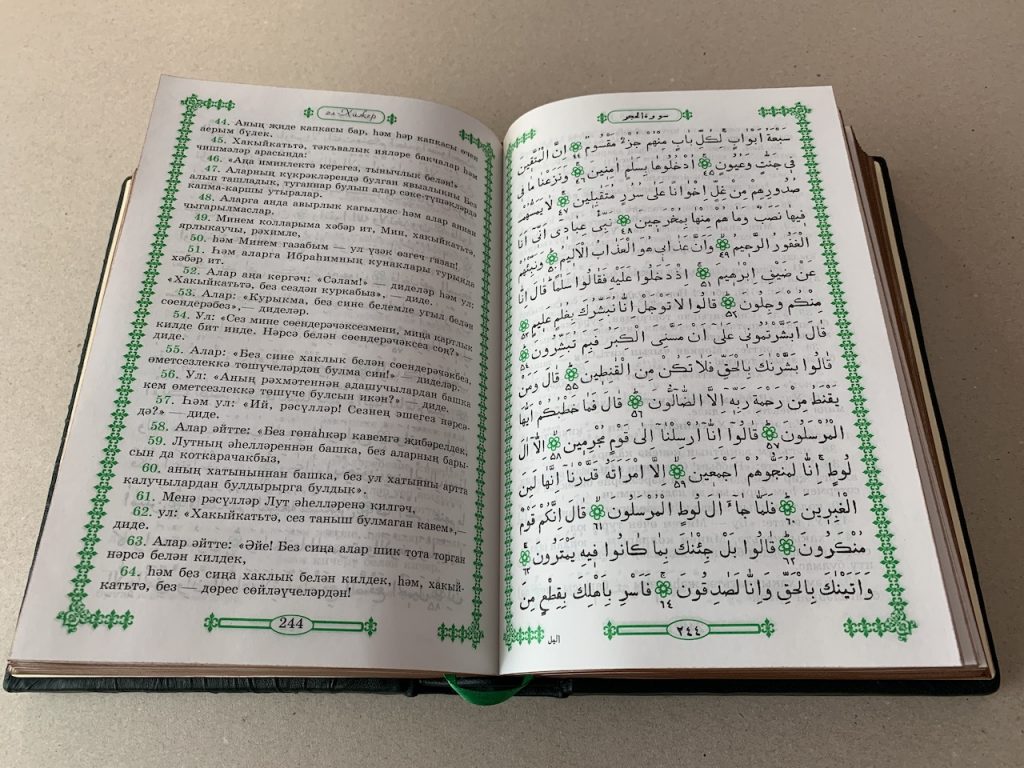 әл-Хиҗер
44. Аның җиде капкасы бар, һәм һәр капкасы өчен
аерым бүлек.
45. Хакыйкатьтә, тәкъвалык ияләре бакчалар һәм
чишмәләр арасында:
46. «Аңа иминлектә керегез, тынычлык белән!»
47. Аларның күкрәкләрендә булган явызлыкны Без
алып ташладык, туганнар булып алар сәке-түшәкләрдә
капма-каршы утыралар.
48. Аларга анда авырлык кагылмас һәм алар аннан
чыгарылмаслар.
49. Минем колларыма хәбәр ит, Мин, хакыйкатьтә,
ярлыкаучы, рәхимле,
50. һәм Минем газабым — ул үзәк өзгеч газап!
51. Һәм аларга Ибраһимның кунаклары турында
хәбәр ит.
52. Алар аңа кергәч: «Сәлам!» — диделәр һәм ул:
«Хакыйкатьтә, без сездән куркабыз», — диде.
53. Алар: «Курыкма, без сине белемле угыл белән
сөендерәбез», — диделәр.
54. Ул: «Сез мине сөендерәчәксезмени, миңа картлык
килде бит инде. Нәрсә белән сөендерәчәксез соң?» —
диде.
55. Алар: «Без сине хаклык белән сөендерәчәкбез,
өметсезлеккә төшүчеләрдән булма син!» — диделәр.
56. Ул: «Аның рәхмәтеннән адашучылардан башка
кем өметсезлеккә төшүче булсын икән?» — диде.
57. Һәм ул: «Ий, рәсүлләр! Сезнең эшегез нәрсә-
дә?» — диде.
58. Алар әйтте: «Без гөнаһкәр кавемгә җибәрелдек,
59. Лутның әһелләреннән башка, без аларның бары-
сын да коткарачакбыз,
60. аның хатыныннан башка, без ул хатынны артта
калучылардан булдырырга булдык».
61. Менә рәсүлләр Лут әһелләренә килгәч,
62. ул: «Хакыйкатьтә, сез таныш булмаган кавем»,—
диде.
63. Алар әйтте: «Әйе! Без сиңа алар шик тота торган
нәрсә белән килдек,
64. һәм без сиңа хаклык белән килдек, һәм, хакый-
катьтә, без — дөрес сөйләүчеләрдән!
244
سورة الحجر
سَبْعَةُ اَبْوَابٍ لِكُلِّ بَابٍ مِنْهُمْ جُزْءٌ مَقْسُومٌ ٤٤ اِنَّ الْمُتَّقِينَ
فِى جَنَّاتٍ وَعُيُونٍ ٤٥ اُدْخُلُوهَا بِسَلَامٍ اٰمِنِينَ ٤٦ وَنَزَعْنَا مَا فِى
صُدُورِهِمْ مِنْ غِلٍّ اِخْوَانًا عَلٰى سُرُرٍ مُتَقَابِلِينَ ٤٧ لَا يَمَسُّهُمْ
فِيهَا نَصَبٌ وَمَا هُمْ مِنْهَا بِمُخْرَجِينَ ٤٨ نَبِّئْ عِبَادِى اَنِّى اَنَا
الْغَفُورُ الرَّحِيمُ ٤٩ وَاَنَّ عَذَابِى هُوَ الْعَذَابُ الْاَلِيمُ ٥٠ وَنَبِّئْهُمْ
عَنْ ضَيْفِ اِبْرٰهِيمَ ٥١ اِذْ دَخَلُوا عَلَيْهِ فَقَالُوا سَلَامًا قَالَ اِنَّا
مِنْكُمْ وَجِلُونَ ٥٢ قَالُوا لَا تَوْجَلْ اِنَّا نُبَشِّرُكَ بِغُلَامٍ عَلِيمٍ ٥٣
قَالَ اَبَشَّرْتُمُونِى عَلٰى اَنْ مَسَّنِىَ الْكِبَرُ فَبِمَ تُبَشِّرُونَ ٥٤
قَالُوا بَشَّرْنَاكَ بِالْحَقِّ فَلَا تَكُنْ مِنَ الْقَانِطِينَ ٥٥ قَالَ وَمَنْ
يَقْنَطُ مِنْ رَحْمَةِ رَبِّهِ اِلَّا الضَّالُّونَ ٥٦ قَالَ فَمَا خَطْبُكُمْ اَيُّهَا
الْمُرْسَلُونَ ٥٧ قَالُوا اِنَّا اُرْسِلْنَا اِلٰى قَوْمٍ مُجْرِمِينَ ٥٨ اِلَّا اٰلَ
لُوطٍ اِنَّا لَمُنَجُّوهُمْ اَجْمَعِينَ ٥٩ اِلَّا امْرَاَتَهُ قَدَّرْنَا اِنَّهَا لَمِنَ
الْغَابِرِينَ ٦٠ فَلَمَّا جَاءَ اٰلَ لُوطٍ الْمُرْسَلُونَ ٦١ قَالَ اِنَّكُمْ قَوْمٌ
مُنْكَرُونَ ٦٢ قَالُوا بَلْ جِئْنَاكَ بِمَا كَانُوا فِيهِ يَمْتَرُونَ ٦٣
وَاَتَيْنَاكَ بِالْحَقِّ وَاِنَّا لَصَادِقُونَ ٦٤ فَاَسْرِ بِاَهْلِكَ بِقِطْعٍ مِنَ
اليل
٢٤٤